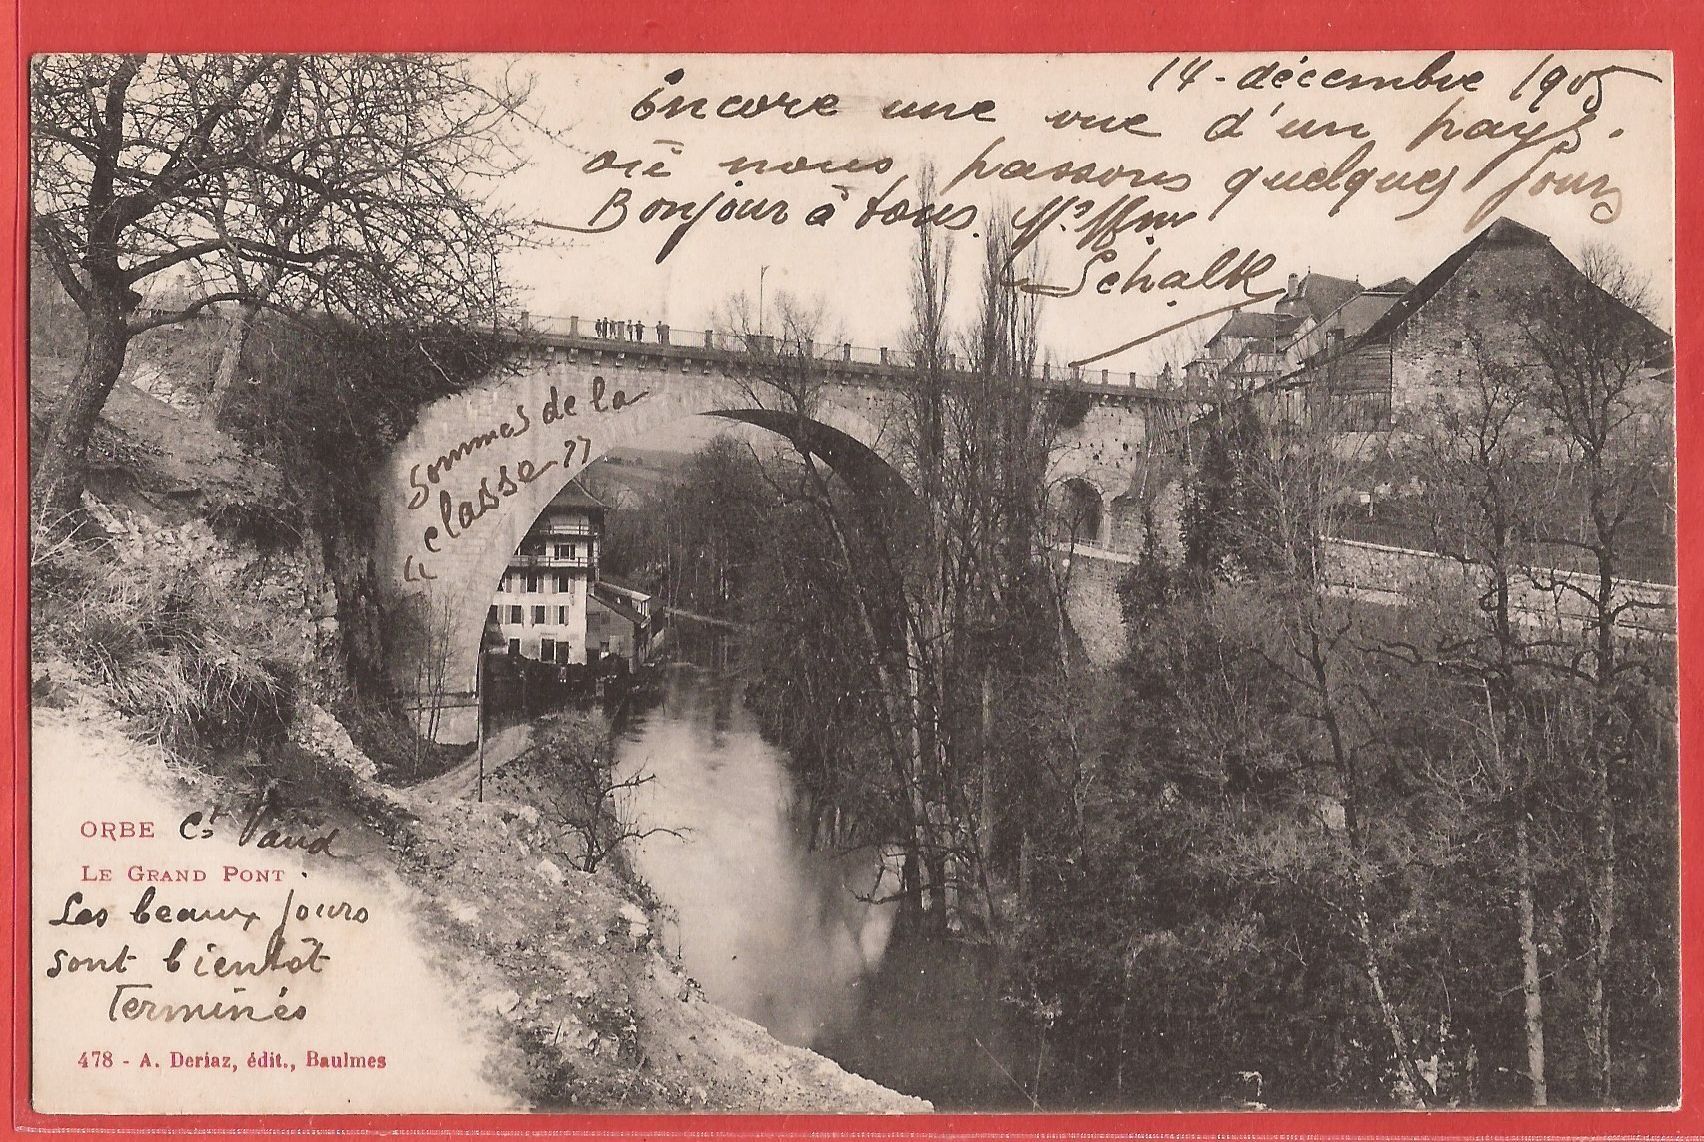 14 - décembre 1905
Encore une vue d'un pays
où nous passons quelques jours
Bonjour à tous. Mr Mme
Schalk
sommes de la
"classe"
ORBE Ct Vaud
LE GRAND PONT
Les beaux jours
sont bientôt
Terminés
478 - A. Deriaz, édit., Baulmes